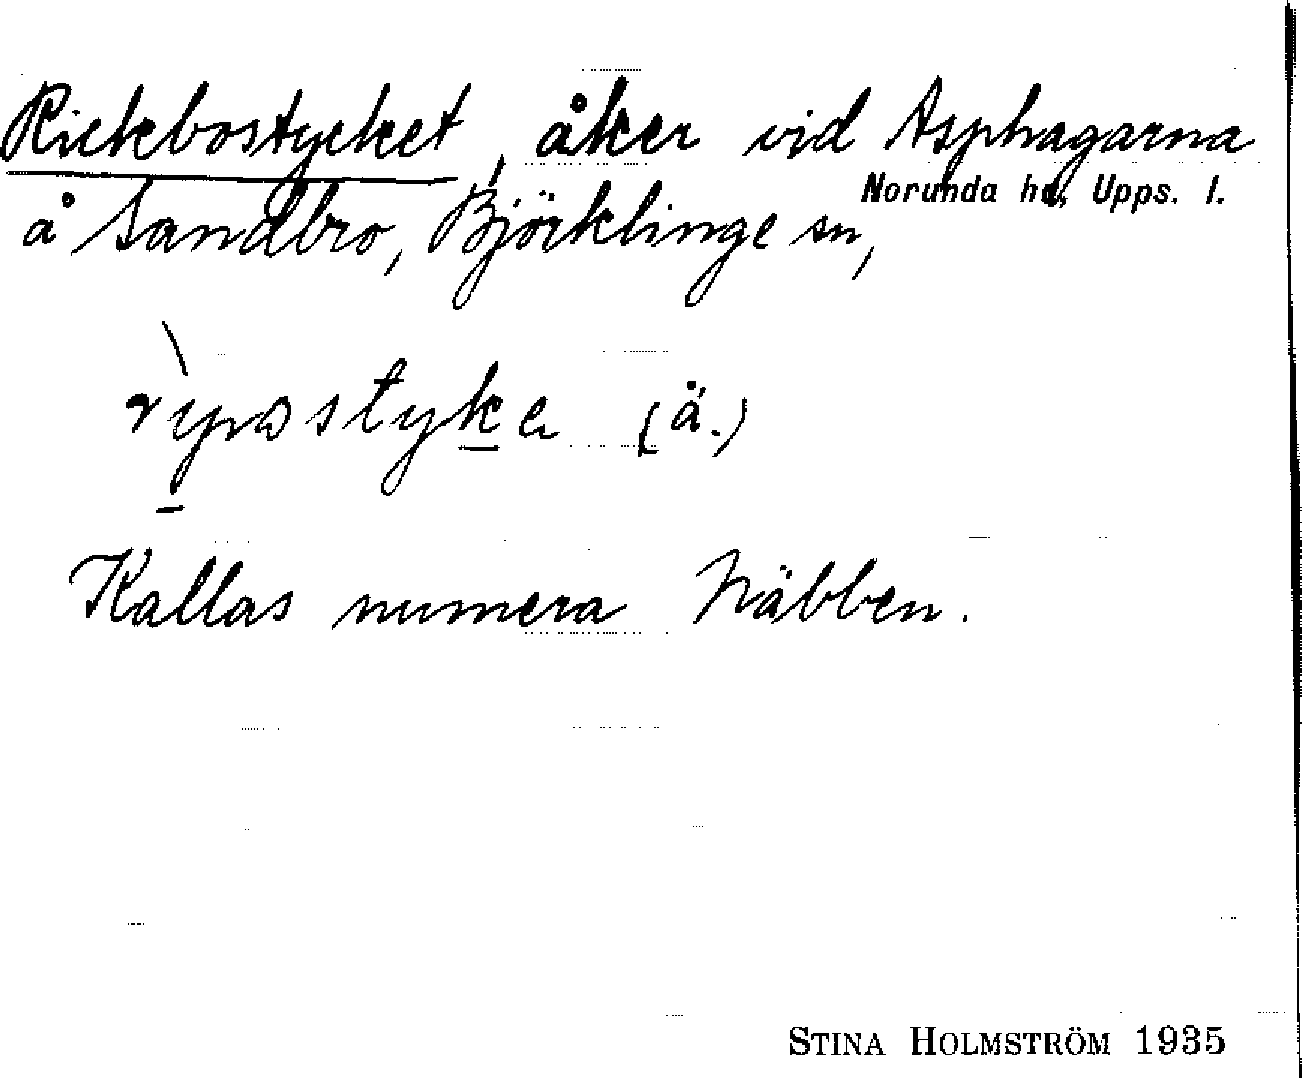 Rickebostycket, åker vid Asphagarna
Norunda hd, Upps. l.
å Sandbro, Björklinge sn,
(ä.)
Kallas numera Näbben.
STINA HOLMSTRÖM 1935